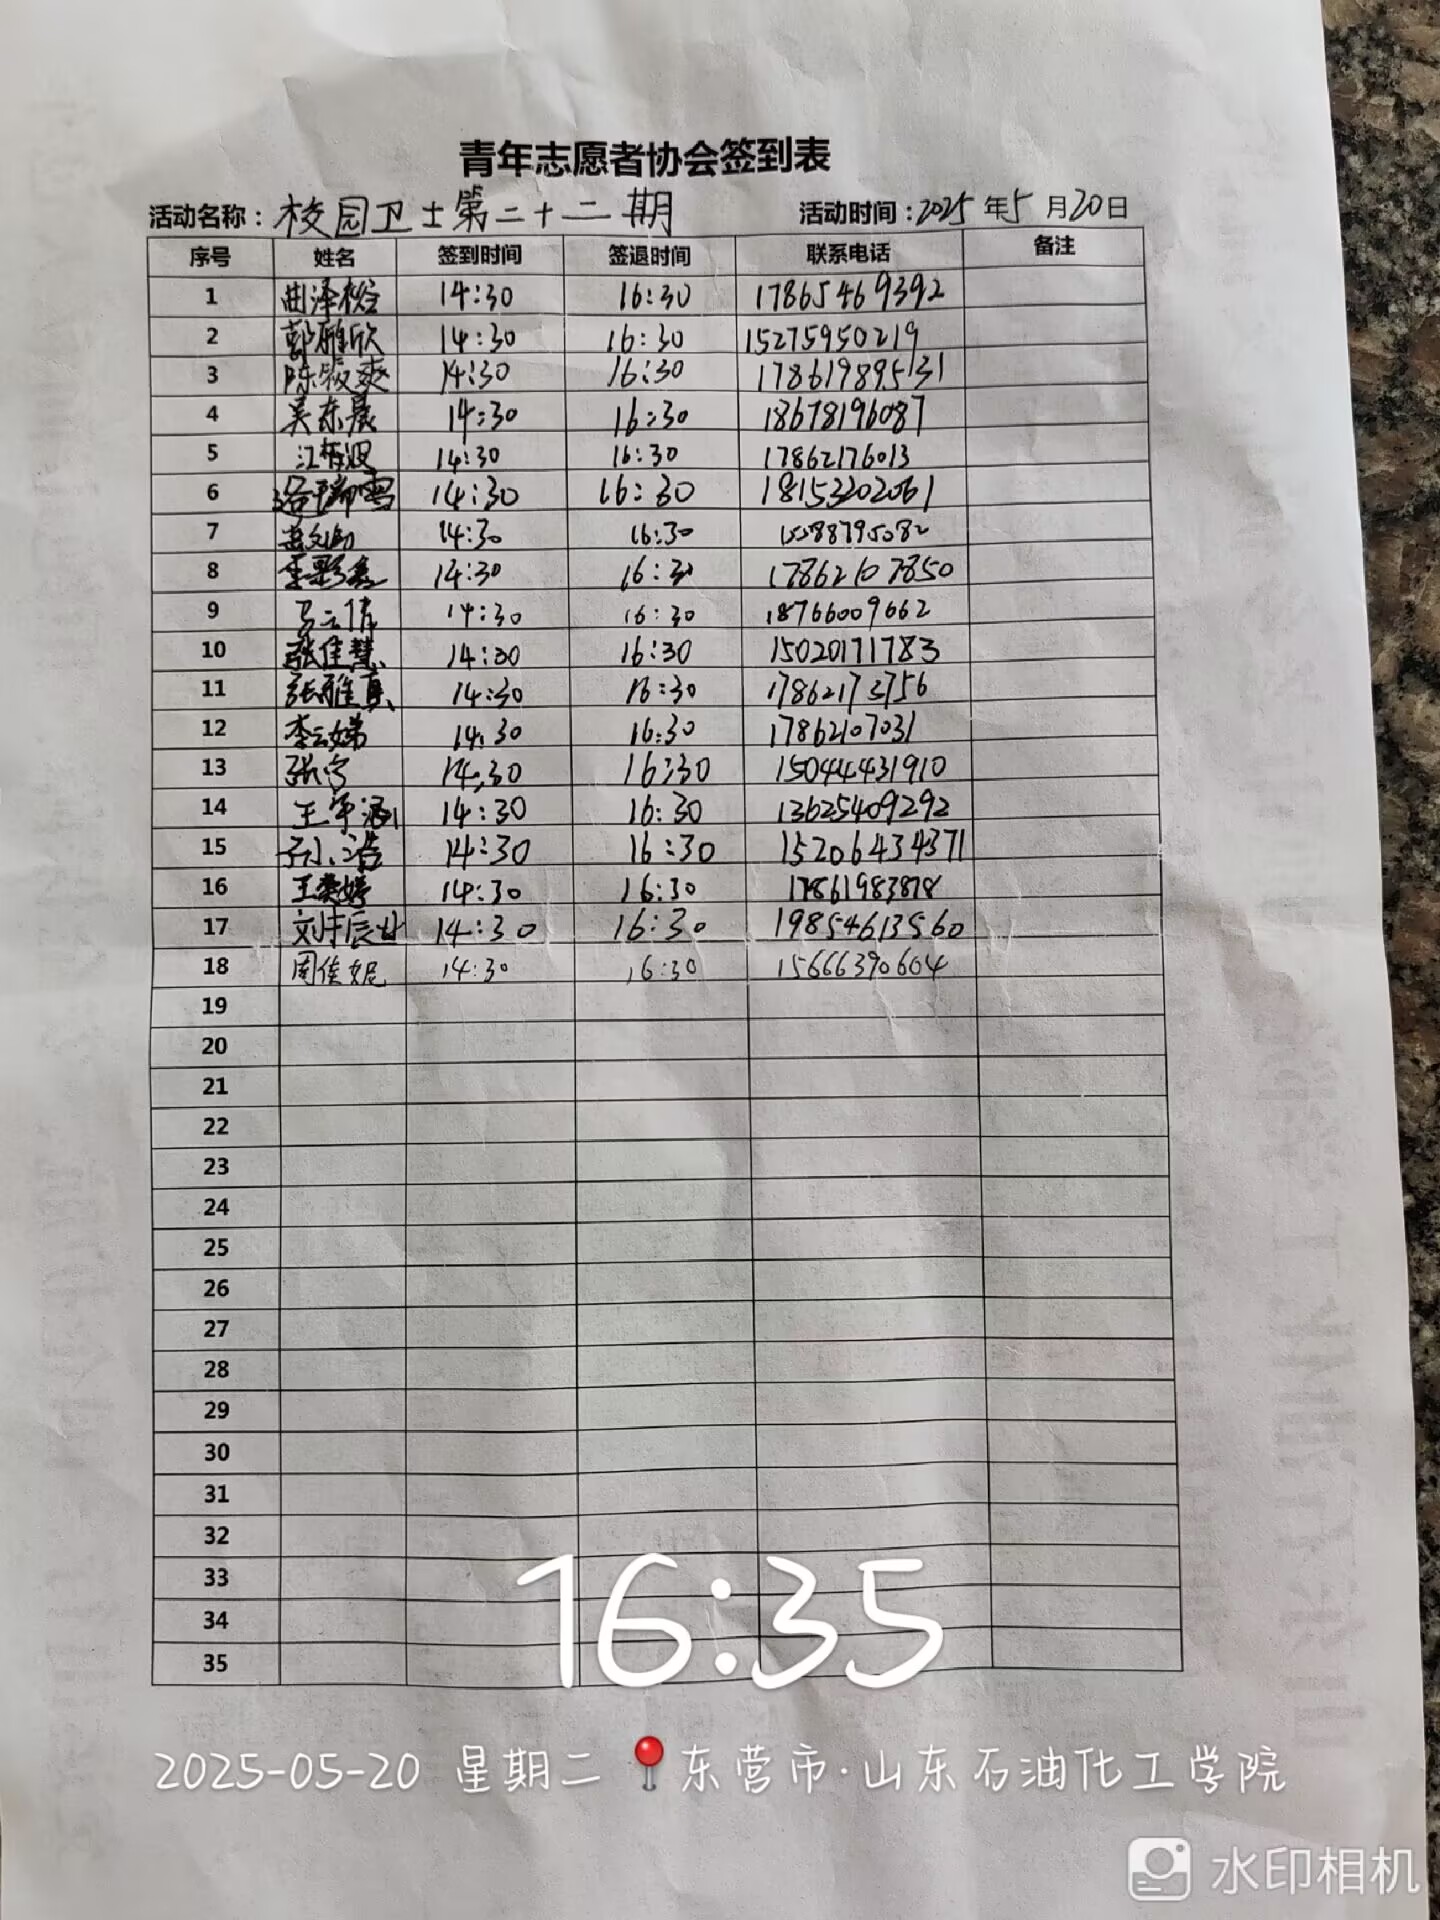 青年志愿者协会签到表
活动名称：校园卫士第二十二期 活动时间：2025年5月20日
序号 姓名 签到时间 签退时间 联系电话 备注
1 曲泽裕 14:30 16:30 17865469392
2 郭雅欣 14:30 16:30 15275950219
3 陈筱爽 14:30 16:30 17861989531
4 吴东晨 14:30 16:30 18678196087
5 14:30 16:30 17862176013
6 14:30 16:30 18153202061
7 14:30 16:30 15588795082
8 14:30 16:30 17862107850
9 马云倩 14:30 16:30 18766009662
10 张佳慧 14:30 16:30 15020171783
11 张雅真 14:30 16:30 17862173756
12 李云娣 14:30 16:30 17862107031
13 张宁 14:30 16:30 15044431910
14 14:30 16:30 13625409292
15 孙浩 14:30 16:30 15206434371
16 王奕婷 14:30 16:30 17861983878
17 14:30 16:30 19854613560
18 周佳妮 14:30 16:30 15666390604
19
20
21
22
23
24
25
26
27
28
29
30
31
32
33
34
35
16:35
2025-05-20 星期二 东营市·山东石油化工学院
水印相机